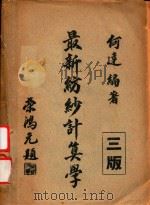 何達編者
最新紡紗計算學
三版
榮鴻元題